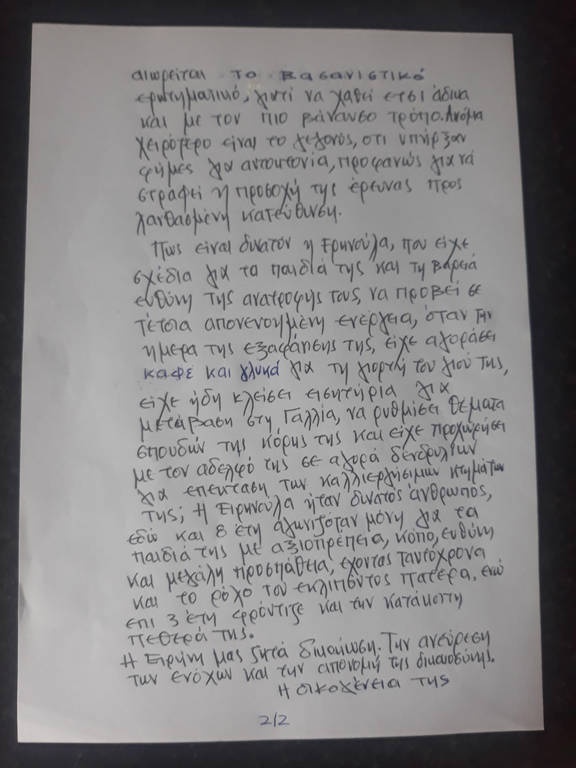 αιωρείται το βασανιστικό
ερωτηματικό, γιατί να χαθεί ετσι άδικα
και με τον πιο βάναυσο τρόπο. Ακόμα
χειρότερο είναι το γεγονός, οτι υπήρξαν
φήμες για αυτοκτονία, προφανώς για να
στραφεί η προσοχή της έρευνας προς
λανθασμένη κατεύθυνση.
Πως είναι δυνατόν η Ειρηνούλα, που είχε
σχέδια για τα παιδιά της και τη βαρειά
ευθύνη της ανατροφής τους, να προβεί σε
τέτοια απονενοημένη ενέργεια, όταν την
ημερα της εξαφάνισης της, είχε αγοράσει
καφε και γλυκά για τη γιορτή του γιού της,
είχε ήδη κλείσει εισητήρια για
μετάβαση στη Γαλλία, να ρυθμίσει θέματα
σπουδών της κόρης της και είχε προχωρήσει
με τον αδελφό της σε αγορά δενδρυλίων
για επέκταση των καλλιεργήσιμων κτημάτων
της; Η Ειρηνούλα ήταν δυνατός άνθρωπος,
εδώ και 8 έτη αγωνιζόταν μόνη για τα
παιδιά της με αξιοπρέπεια, κόπο, ευθύνη
και μεγάλη προσπάθεια, έχοντας ταυτόχρονα
και το ρόλο του εκλιπόντος πατέρα, ενώ
επι 3 έτη φρόντιζε και την κατάκοιτη
πεθερά της.
Η Ειρήνη μας ζητά δικαίωση. Την ανεύρεση
των ενόχων και την απονομή της δικαιοσύνης.
Η οικογένεια της
2/2